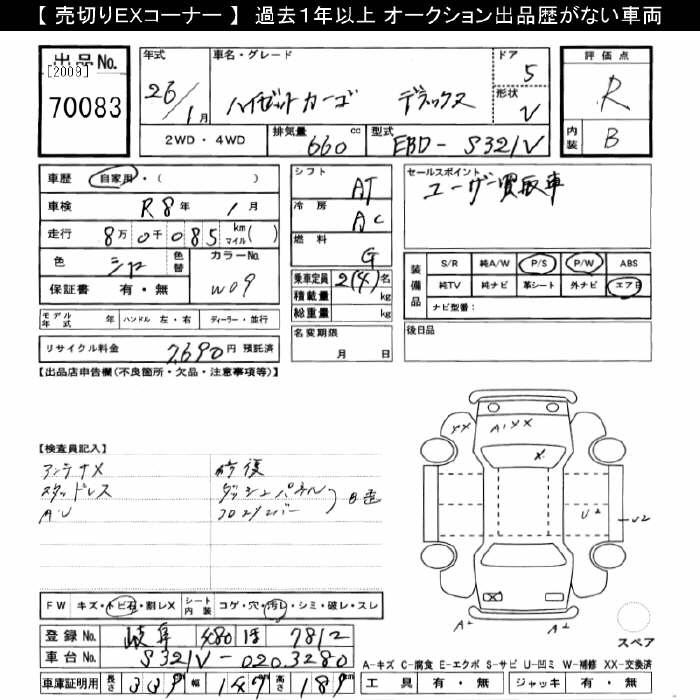 【 売切りEXコーナー 】 過去１年以上 オークション出品歴がない車両
出品No.
[2009]
70083
年式
26/1月
車名・グレード
ハイゼットカーゴ デラックス
ドア
5
形状
V
評価点
R
内装
B
2WD・4WD
排気量
660 cc
型式
EBD-S321V
車歴 自家用・( )
車検 R8年 1月
走行 8万0千085 km マイル( )
色 シロ 色替
カラーNo.
W09
保証書 有・無
モデル年式 年 ハンドル 左・右 ディーラー・並行
リサイクル料金 7,690円 預託済
シフト
AT
冷房
AC
燃料
G
乗車定員 2(4)名
積載量 kg
総重量 kg
名変期限
月 日
セールスポイント
ユーザー買取車
装備品
S/R 純A/W P/S P/W ABS
純TV 純ナビ 革シート 外ナビ エアB
ナビ型番：
後日品
【出品店申告欄(不良箇所・欠品・注意事項等)】
【検査員記入】
アンテナX 修復
スタッドレス ダッシュパネル
A.U フロアメンバー
XX
A1 XX
X
U2
U2
X
A2
A2
スペア
FW キズ・トビ石・割レX シート内装 コゲ・穴・汚レ・シミ・破レ・スレ
登録No. 岐阜 480 ほ 7812
車台No. S321V-0203280
車庫証明用 長さ 339 幅 147 高さ 189
A-キズ C-腐食 E-エクボ S-サビ U-凹ミ W-補修 XX-交換済
工具 有・無 ジャッキ 有・無